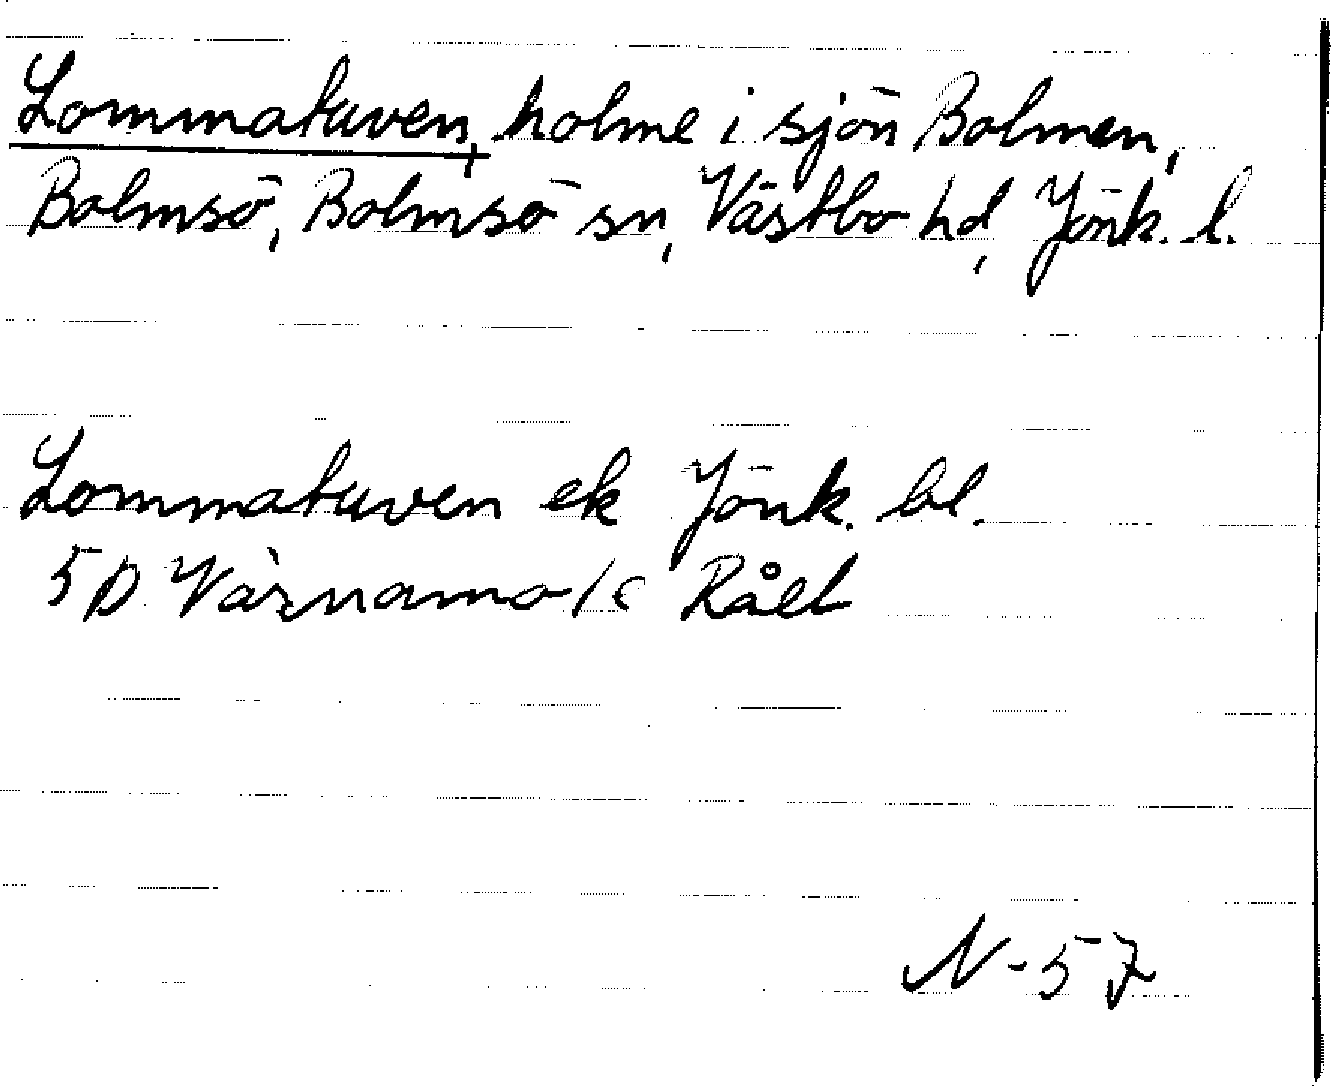 Lommatuven, holme i sjön Bolmen,
Bolmsö, Bolmsö sn, Västbo hd, Jönk. l.
Lommatuven ek Jönk. bl.
5D Värnamo
N-57